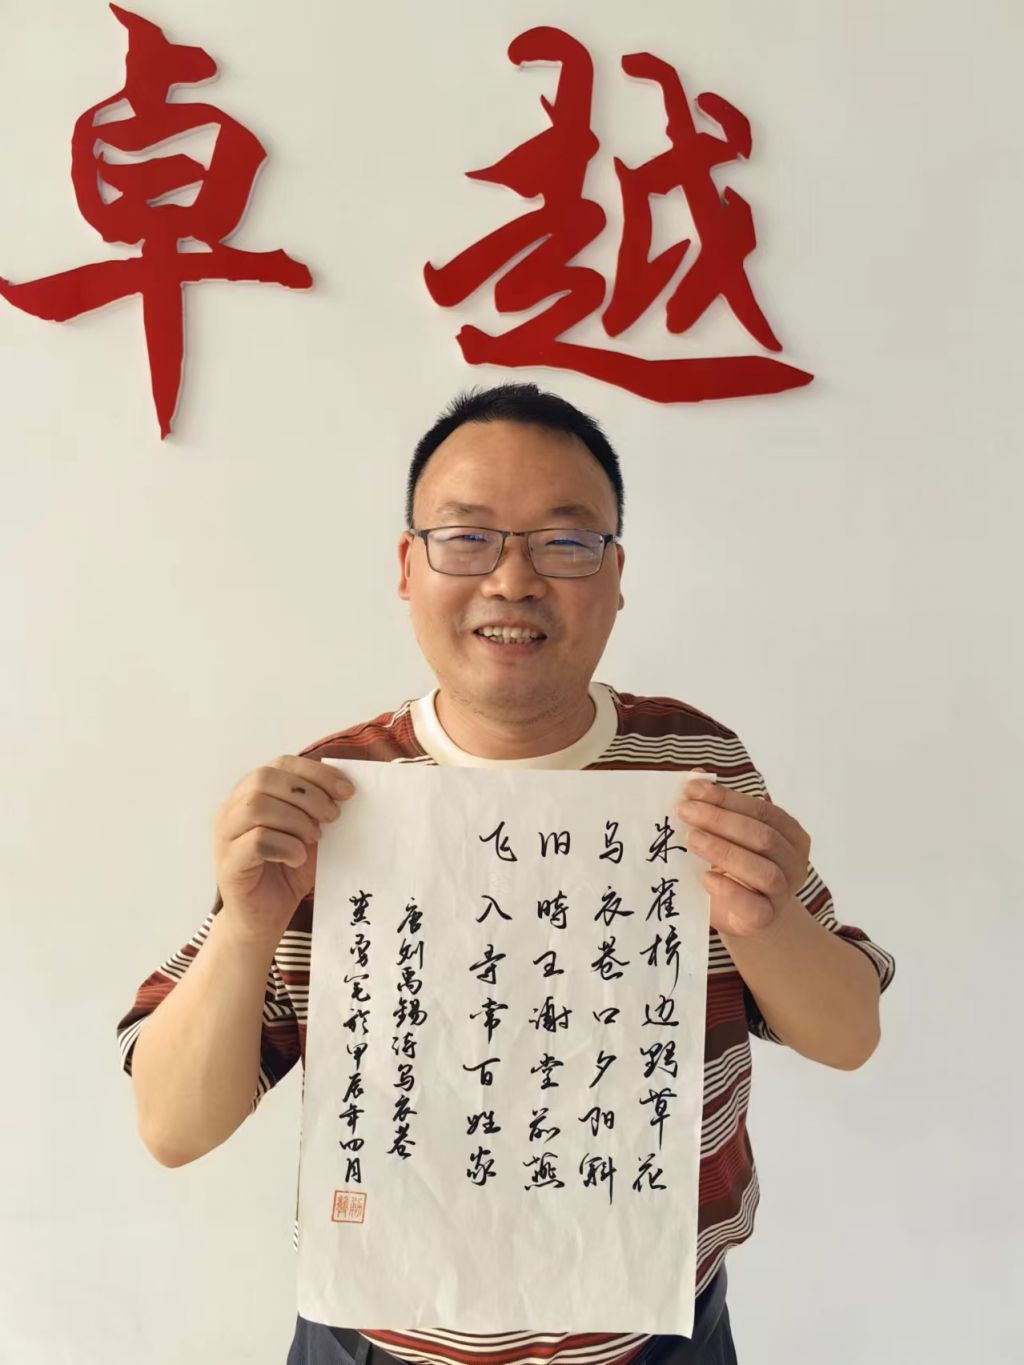 卓越
朱雀桥边野草花
乌衣巷口夕阳斜
旧時王謝堂前燕
飞入寻常百姓家
唐刘禹錫诗乌衣巷
勇写於甲辰年四月